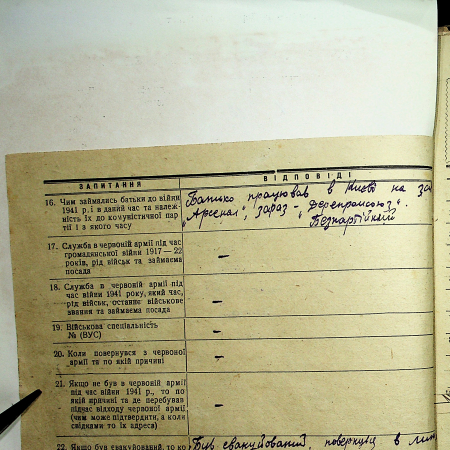 ЗАПИТАННЯ
ВІДПОВІДІ
16. Чим займались батьки до війни
1941 р. і в даний час та належ-
ність їх до комуністичної пар-
тії і з якого часу
Батько працював в Києві на
„Арсенал", зараз - „Деревпромсоюз".
Безпартійний
17. Служба в червоній армії під час
громадянської війни 1917—22
років, рід військ та займаєма
посада
—
18. Служба в червоній армії під
час війни 1941 року, який час,
рід військ, останнє військове
звання та займаєма посада
—
19. Військова спеціальність
№ (ВУС)
—
20. Коли повернувся з червоної
армії та по якій причині
—
21. Якщо не був в червоній армії
під час війни 1941 р., то по
якій причині та де перебував
підчас відходу червоної армії,
(чим може підтвердити, а коли
свідками то їх адреса)
—
22. Якщо був евакуйований, то ко
Був евакуйований, в